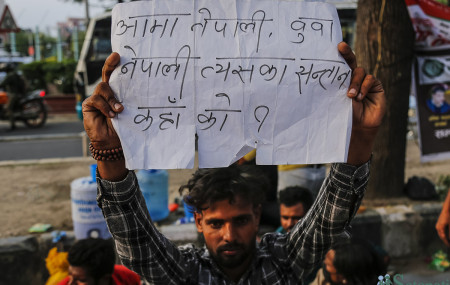 आमा नेपाली, बुवा
नेपाली त्यसका सन्तान
कहाँ को ?